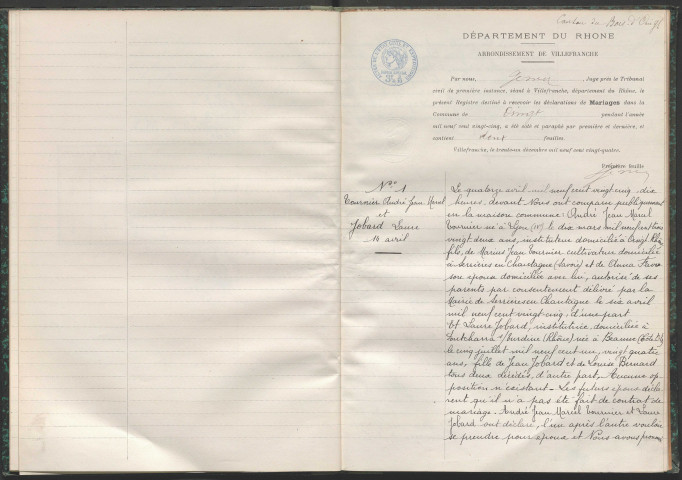 Canton du Bois d'Oingt
DÉPARTEMENT DU RHONE
ARRONDISSEMENT DE VILLEFRANCHE
Par nous, Juge près le Tribunal
civil de première instance, séant à Villefranche, département du Rhône, le
présent Registre destiné à recevoir les déclarations de Mariages dans la
Commune de Oingt pendant l'année
mil neuf cent vingt-cinq, a été coté et paraphé par première et dernière, et
contient feuilles.
Villefranche, le trente-un décembre mil neuf cent vingt-quatre.
Première feuille
No 1
Tournier André Jean Marcel
et
Jobard Laure
14 avril
Le quatorze avril mil neuf cent vingt cinq, dix
heures, devant Nous ont comparu publiquement
en la maison commune: André Jean Marcel
Tournier né à Lyon le dix mars mil neuf cent trois
vingt deux ans, instituteur domicilié à Oingt Rhône
fils, de Marius Jean Tournier cultivateur domicilié
à Serrières en Chautagne (Savoie) et de Favre
son épouse domiciliée avec lui, autorisé de ses
parents par consentement délivré par la
Mairie de Serrières en Chautagne le six avril
mil neuf cent vingt-cinq, d'une part
Et Laure Jobard, institutrice, domiciliée à
Pontcharra s/Turdine (Rhône) née à Beaune (Côte d'Or)
le cinq juillet mil neuf cent un, vingt quatre
ans, fille de Jean Jobard et de Louise Bernard
tous deux décédés, d'autre part. Aucune op-
position n'existant - Les futurs époux décla-
rent qu'il n'a pas été fait de contrat de
mariage. André Jean Marcel Tournier et Laure
Jobard ont déclaré, l'un après l'autre vouloir
se prendre pour époux et Nous avons prononcé